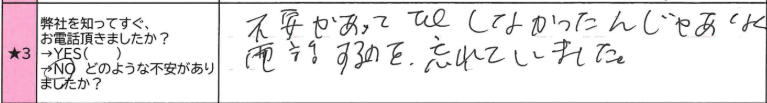 ★3
弊社を知ってすぐ、
お電話頂きましたか？
→YES(　　)
→NO どのような不安があり
ましたか？
不安があって TEL してなかったんじゃあなく
電話するのを、忘れていました。